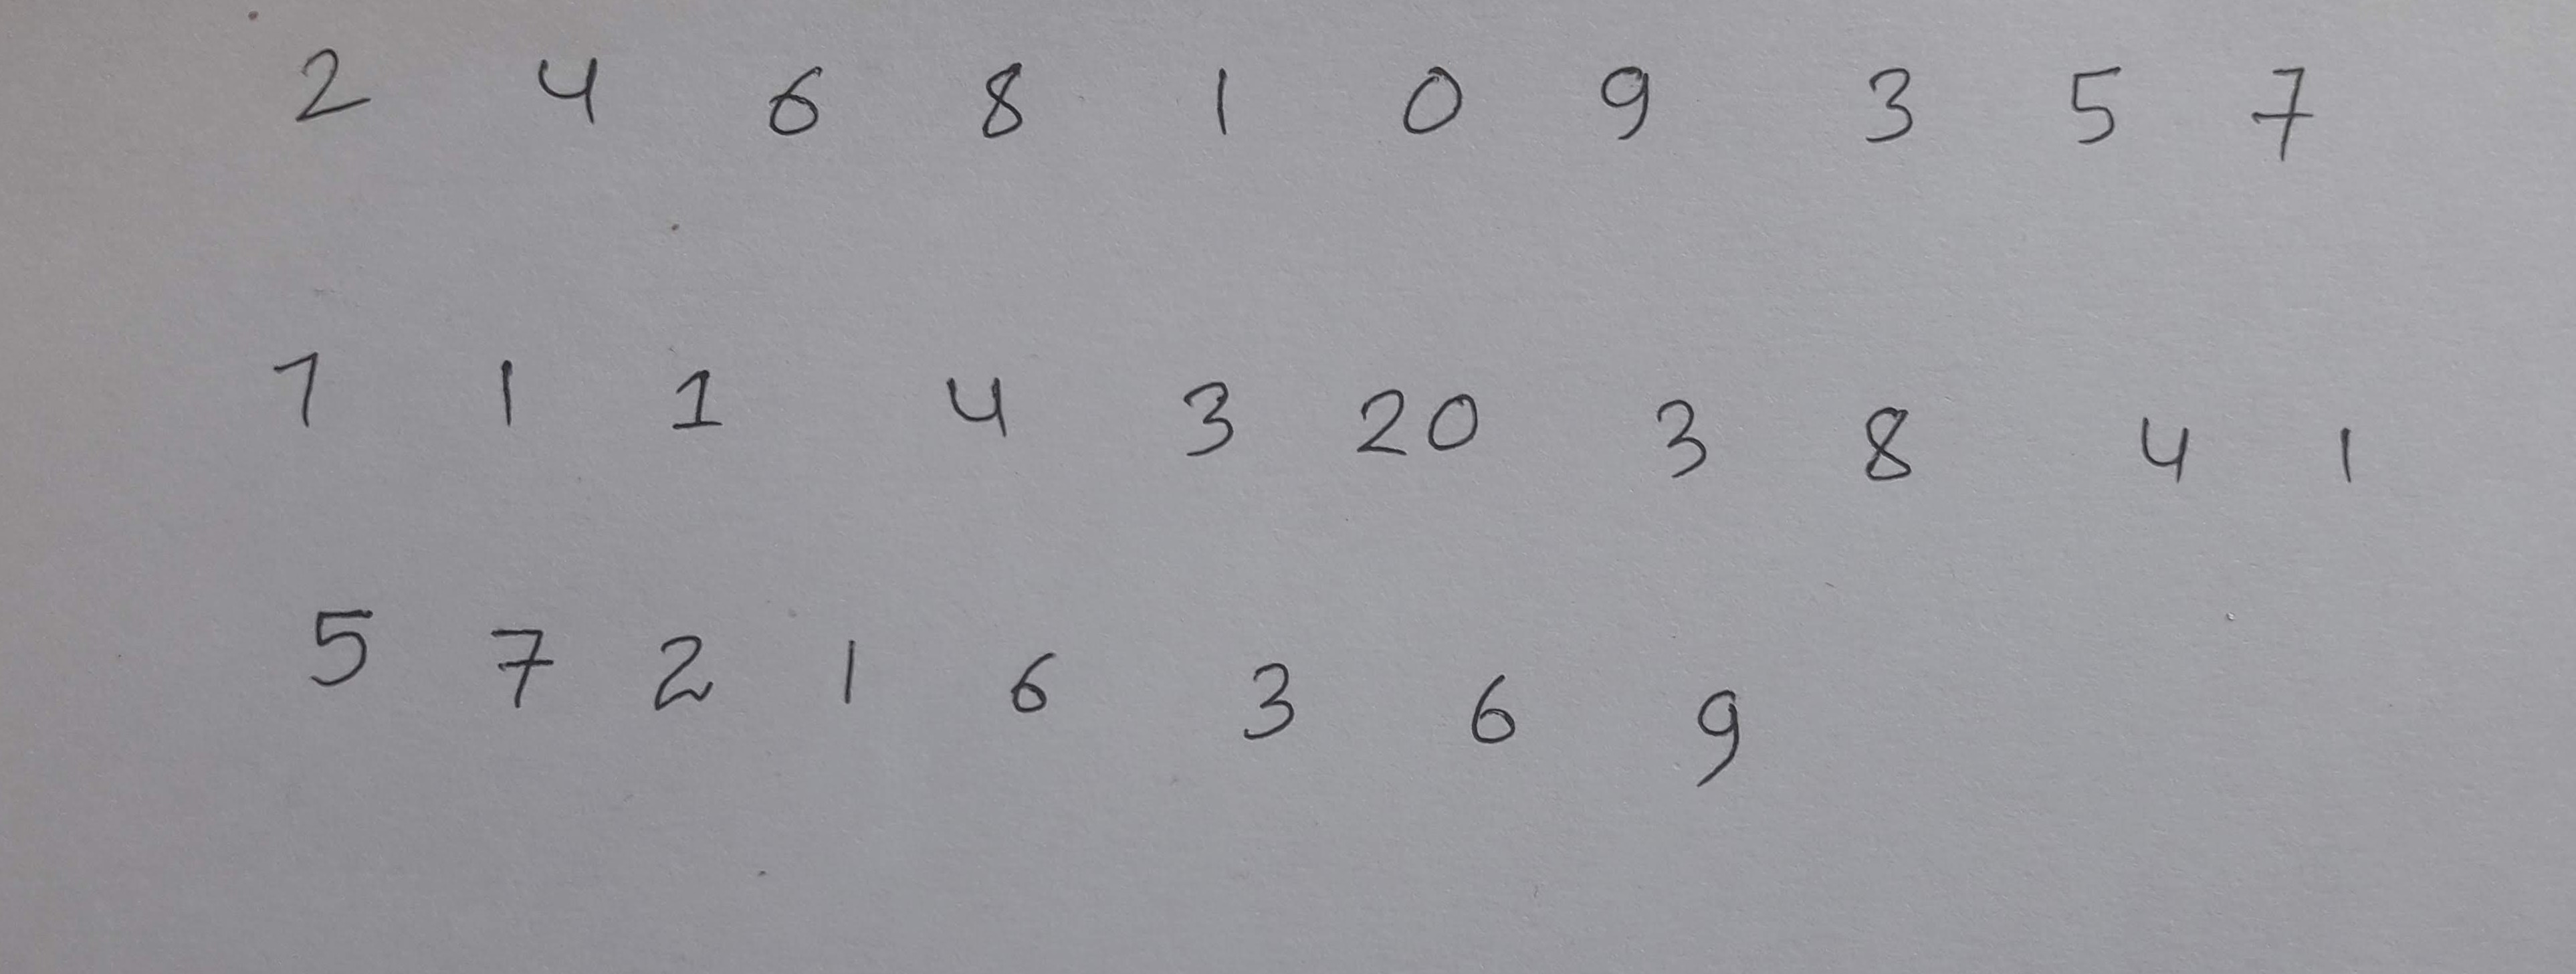 2 4 6 8 1 0 9 3 5 7
1 1 1 4 3 20 3 8 4 1
5 7 2 1 6 3 6 9